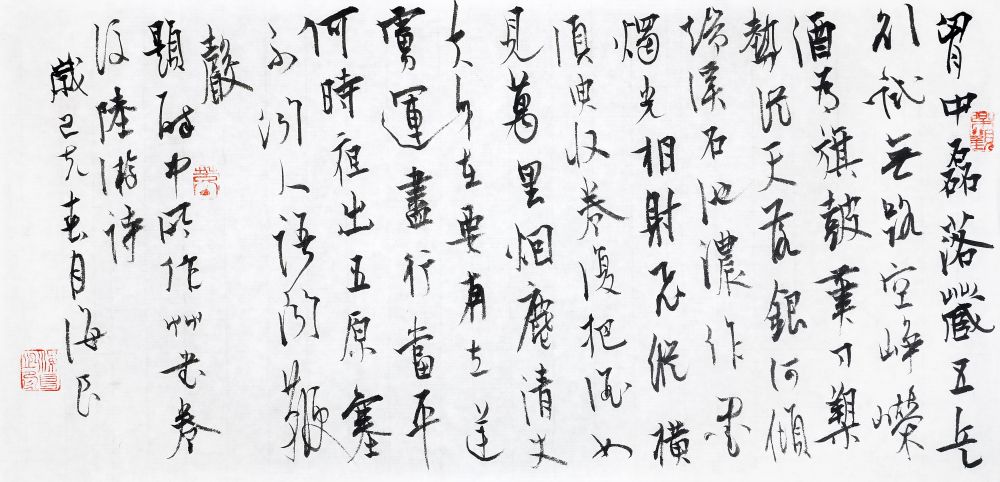 胷中磊落藏五兵
欲試無路空崢嶸
酒為旗鼓筆刀槊
勢從天落銀河傾
端溪石池濃作墨
燭光相射飛縱橫
須臾收卷復把酒如
見萬里烟塵清丈
夫身在要有立逆
虜運盡行當平
何時夜出五原塞
不聞人語聞鞭
聲
題醉中所作草書卷
後陸游詩
歲己亥春月海